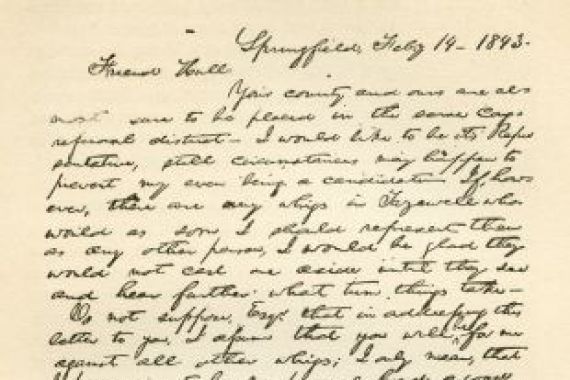 Springfield, Feby 14 - 1843.
Friend Hull
Your county and ours are al-
most sure to be placed in the same Cong-
ressional district - I would like to be its Repre
sentative, still circumstances may happen to
prevent my even being a candidate - If, how-
ever, there are any whigs in Tazewell who
would as soon I should represent them
as any other person, I would be glad they
would not cast me aside until they see
and hear farther what turn things take -
Do not suppose, Esqr. that in addressing this
letter to you, I assume that you will be for me
against all other whigs; I only mean, that